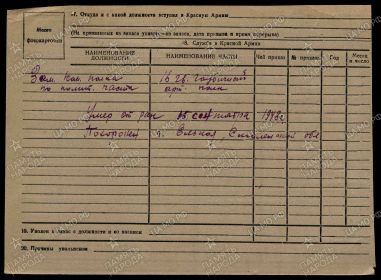 17. Откуда и с какой должности вступил в Красную Армию
Место
фотокарточки
(Из призванных из запаса указать: из запаса, дата призыва и время перерыва)
18. Служба в Красной Армии
НАИМЕНОВАНИЕ ДОЛЖНОСТИ
НАИМЕНОВАНИЕ ЧАСТИ
Чей приказ
№ приказа
Год
Месяц и число
Зам. ком. полка 16 гв. гаубичный
по полит. части арт. полк
Умер от ран 15 сентября 1943 г
Похоронен г. Ельня Смоленской обл
19. Уволен в запас с должности и по казании
20. Причины увольнения
ПАМЯТЬ НАРОДА